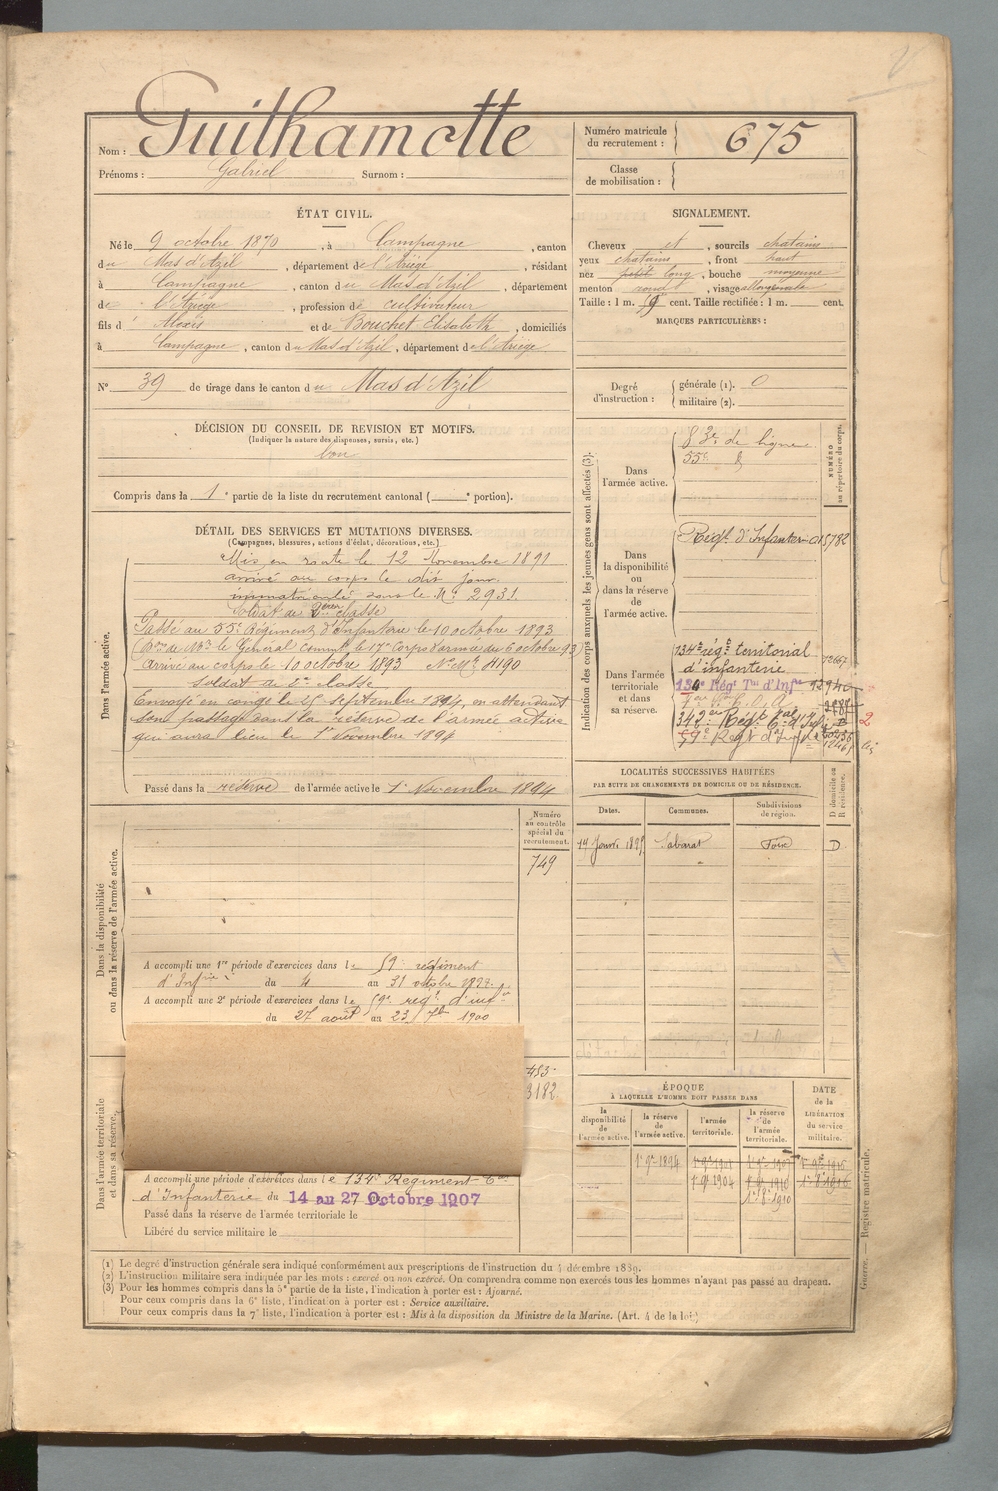 Nom : Guilhamotte
Prénoms : Gabriel Surnom :
Numéro matricule du recrutement : 675
Classe de mobilisation :
ÉTAT CIVIL.
Né le 9 octobre 1870, à Campagne, canton
du Mas d'Azil, département de l'Ariège, résidant
à Campagne, canton du Mas d'Azil, département
de l'Ariège, profession de cultivateur
fils d' Alexis et de Bouchet Elisabeth, domiciliés
à Campagne, canton du Mas d'Azil, département de l'Ariège
N° 39 de tirage dans le canton du Mas d'Azil
DÉCISION DU CONSEIL DE REVISION ET MOTIFS.
(Indiquer la nature des dispenses, sursis, etc.)
bon
Compris dans la 1e partie de la liste du recrutement cantonal ( e portion).
SIGNALEMENT.
Cheveux et, sourcils chatains
yeux chatains, front haut
nez petit long, bouche moyenne
menton rond, visage
Taille : 1 m. cent. Taille rectifiée : 1 m. cent.
MARQUES PARTICULIÈRES :
Degré d'instruction : générale (1). 0
militaire (2).
DÉTAIL DES SERVICES ET MUTATIONS DIVERSES.
(Campagnes, blessures, actions d'éclat, décorations, etc.)
Dans l'armée active.
Mis en route le 12 Novembre 1891
arrivé au corps le dit jour.
immatriculé sous le N° 2931.
Soldat de 2eme classe
Passé au 55e Régiment d'Infanterie le 10 octobre 1893
(Don de Mr le Général Commt le 17e Corps d'armée du 6 octobre 93)
Arrivé au corps le 10 octobre 1893 N° Mle 4190
soldat de 2e classe
Envoyé en congé le 25 Septembre 1894, en attendant
son passage dans la réserve de l'armée active
qui aura lieu le 1er Novembre 1894
Passé dans la réserve de l'armée active le 1er Novembre 1894
Indication des corps auxquels les jeunes gens sont affectés (3).
NUMÉRO au répertoire du corps.
Dans l'armée active.
83e de ligne
55e
Dans la disponibilité ou dans la réserve de l'armée active.
Régt d'Infanterie 5782
Dans l'armée territoriale et dans sa réserve.
134e régt territorial
d'infanterie 12667
134e Régt Tal d'Infie 12940
59e Régt d'Inf
LOCALITÉS SUCCESSIVES HABITÉES
PAR SUITE DE CHANGEMENTS DE DOMICILE OU DE RÉSIDENCE.
Dates. Communes. Subdivisions de région. D domicile ou R résidence.
Sabarat Foix D
Dans la disponibilité ou dans la réserve de l'armée active.
Numéro au contrôle spécial du recrutement.
749
A accompli une 1re période d'exercices dans le 59e régiment
d'Infie du 4 au 31 octobre 1897.
A accompli une 2e période d'exercices dans le 59e régt d'infie
du 27 août au 23 7bre 1900
Dans l'armée territoriale et dans sa réserve.
453
3182
A accompli une période d'exercices dans le 134e Régiment Tal
d'Infanterie du 14 au 27 Octobre 1907
Passé dans la réserve de l'armée territoriale le
Libéré du service militaire le
ÉPOQUE
À LAQUELLE L'HOMME DOIT PASSER DANS
la disponibilité de l'armée active. la réserve de l'armée active. l'armée territoriale. la réserve de l'armée territoriale.
DATE de la LIBÉRATION du service militaire.
1er 9re 1894
1er 9re 1904
Guerre. — Registre matricule.
(1) Le degré d'instruction générale sera indiqué conformément aux prescriptions de l'instruction du 4 décembre 1889.
(2) L'instruction militaire sera indiquée par les mots : exercé ou non exercé. On comprendra comme non exercés tous les hommes n'ayant pas passé au drapeau.
(3) Pour les hommes compris dans la 5e partie de la liste, l'indication à porter est : Ajourné.
Pour ceux compris dans la 6e liste, l'indication à porter est : Service auxiliaire.
Pour ceux compris dans la 7e liste, l'indication à porter est : Mis à la disposition du Ministre de la Marine. (Art. 4 de la loi)